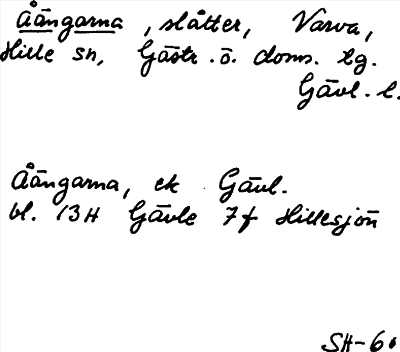 Åängarna, slåtter, Varva,
Hille sn, Gästr. ö. doms. tg.
Gävl. l.
Åängarna, ek Gävl.
bl. 13H Gävle 7f Hillesjön